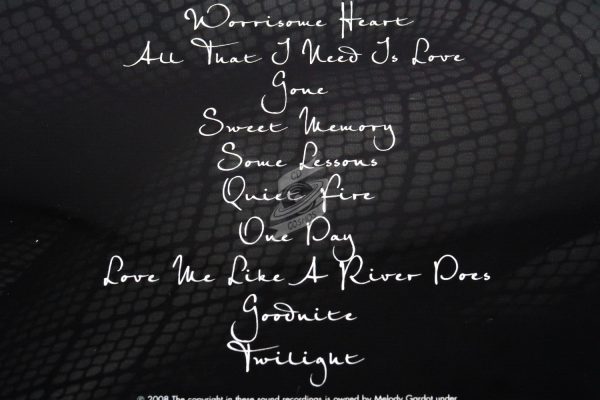 Worrisome Heart
All That I Need Is Love
Gone
Sweet Memory
Some Lessons
Quiet Fire
CD
COSMOS
One Day
Love Me Like A River Does
Goodnite
Twilight
© 2008 The copyright in these sound recordings is owned by Melody Gardot under